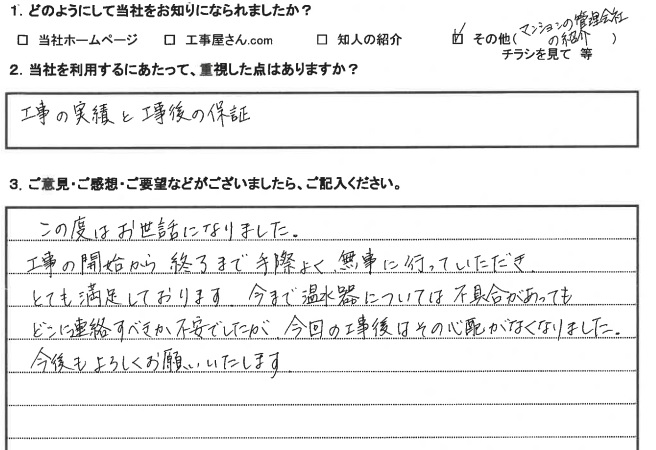 1. どのようにして当社をお知りになられましたか？
□ 当社ホームページ □ 工事屋さん.com □ 知人の紹介 ☑ その他(マンションの管理会社の紹介)
チラシを見て 等
2. 当社を利用するにあたって、重視した点はありますか？
工事の実績と工事後の保証
3. ご意見・ご感想・ご要望などがございましたら、ご記入ください。
この度はお世話になりました。
工事の開始から終るまで手際よく、無事に行っていただき、
とても満足しております。今まで温水器については不具合があっても
どこに連絡すべきか不安でしたが、今回の工事後はその心配がなくなりました。
今後もよろしくお願いいたします。